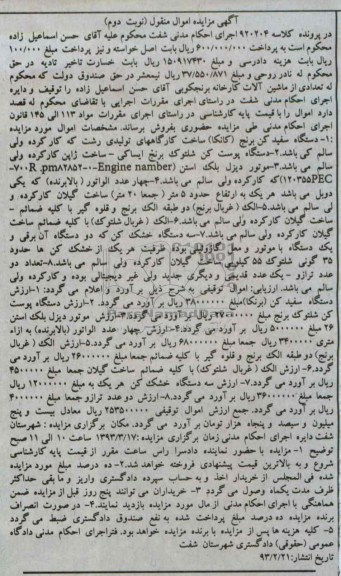 آگهی مزایده اموال منقول (نوبت دوم)
در پرونده کلاسه ۹۲۰۲۰۴ اجرای احکام مدنی شفت محکوم علیه آقای حسن اسماعیل زاده
محکوم است به پرداخت ۶۰۰/۰۰۰/۰۰۰ ریال بابت اصل خواسته و نیز پرداخت مبلغ ۱۰۰/۰۰۰
ریال بابت هزینه دادرسی و مبلغ ۱۵۰۹۱۷۴۳۰ ریال بابت خسارت تاخیر تادیه در حق
محکوم له نادر روحی و مبلغ ۳۷/۵۵۰/۸۷۱ ریال نیمعشر در حق صندوق دولت که محکوم
له تعدادی از ماشین آلات کارخانه برنجکوبی آقای حسن اسماعیل زاده را توقیف و دایره
اجرای احکام مدنی شفت در راستای اجرای مقررات اجرایی با تقاضای محکوم له قصد
دارد اموال را با قیمت پایه کارشناسی در راستای اجرای مقررات مواد ۱۱۳ الی ۱۴۵ قانون
اجرای احکام مدنی طی مزایده حضوری بفروش برساند. مشخصات اموال مورد مزایده
:۱- دستگاه سفید کن برنج (کانکا) ساخت کارگاههای تولیدی رشت که کار کرده ولی
سالم می باشد.۲-دستگاه پوست کن شلتوک برنج ایساکی – ساخت ژاپن کارکرده ولی
سالم می باشد.۳-موتور دیزل بلک استن (Engine namber
۱۲۰۳۵۵PEC) که کارکرده ولی سالم می باشد.۴-چهار عدد الواتور (بالابرنده) که یکی
دوبل می باشد هر یک به ارتفاع حدود ۵ متر (جمعا ۲۰ متر) ساخت گیلان کارکرده و
لی سالم می باشد.۵-الک (غربال برنج) دو طبقه الک برنج و قلوه گیر با کلیه ضمائم –
ساخت گیلان کارکرده ولی سالم می باشد.۶-الک (غربال شلتوک) با کلیه ضمائم ساخت
گیلان کارکرده ولی سالم می باشد.۷-سه دستگاه خشک کن که دو دستگاه آن برقی و
یک دستگاه با موتور و مشعل گازوئیلی بوده ظرفیت هر یک از خشک کن ها حدود
۳۵ گونی شلتوک ۵۵ کیلویی ساخت گیلان کارکرده ولی سالم می باشد.۸-تعداد دو
عدد ترازو – یک عدد قدیمی و دیگری جدید ولی غیر دیجیتالی بوده و کارکرده ولی
سالم می باشد. ارزیابی: اموال توقیفی به شرح ذیل بر آورد و اعلام می گردد: ۱-ارزش
دستگاه سفید کن (برنکا) مبلغ ۳۸۰۰۰۰۰۰ ریال بر آورد می گردد. ۲-ارزش دستگاه پوست
کن شلتوک برنج مبلغ ریال بر آورد می گردد.۳-ارزش موتور دیزل بلک استن
۲۶ مبلغ ۵۰۰۰۰۰۰ ریال بر آورد می گردد.۴-ارزش چهار عدد الواتور (بالابرنده) به ازاء
متری ۳۴۰۰۰۰۰ ریال جمعا مبلغ ۶۸۰۰۰۰۰۰ ریال بر آورد می گردد.۵-ارزش الک (غربال
برنج) دو طبقه الک برنج و قلوه گیر با کلیه ضمائم جمعا مبلغ ۲۶۰۰۰۰۰۰ ریال بر آورد می
گردد.۶- ارزش الک (غربال شلتوک) با کلیه ضمائم ساخت گیلان جمعا مبلغ ۴۵۰۰۰۰۰
ریال بر آورد می گردد.۷- ارزش سه دستگاه خشک کن هر یک به مبلغ ۱۲۰۰۰۰۰۰ ریال
جمعا مبلغ ۳۶۰۰۰۰۰۰ ریال بر آورد می گردد.۸- ارزش دو عدد ترازو جمعا مبلغ ۴۰۰۰۰۰۰
ریال بر آورد می گردد. جمع ارزش اموال توقیفی ۲۵۳۵۰۰۰۰۰ ریال معادل بیست و پنج
میلیون و سیصد و پنجاه هزار تومان بر آورد می گردد. مکان برگزاری مزایده : شهرستان
شفت دایره اجرای احکام مدنی زمان برگزاری مزایده :۱۳۹۳/۳/۱۷ ساعت ۱۰ الی ۱۱ صبح
توضیح ۱- مزایده با حضور نماینده دادسرا راس ساعت مقرر از قیمت پایه کارشناسی
شروع و به بالاترین قیمت پیشنهادی فروخته خواهد شد.۲- ده درصد مبلغ مورد مزایده
شده فی المجلس از خریدار اخذ و به حساب سپرده دادگستری واریز و ما بقی حداکثر
ظرف مدت یکماه وصول می گردد ۳- خریداران می توانند پنج روز قبل از مزایده ضمن
هماهنگی با اجرای احکام مدنی از مال مورد مزایده بازدید نمایند.۴- در صورت انصراف
برنده مزایده ده درصد مبلغ پرداخت شده به نفع صندوق دادگستری ضبط می گردد
۵- کلیه هزینه ها پس از مزایده با برنده مزایده خواهد بود. فتراجرای احکام مدنی دادگاه
عمومی (حقوقی) دادگستری شهرستان شفت
تاریخ انتشار: ۹۳/۲/۲۱